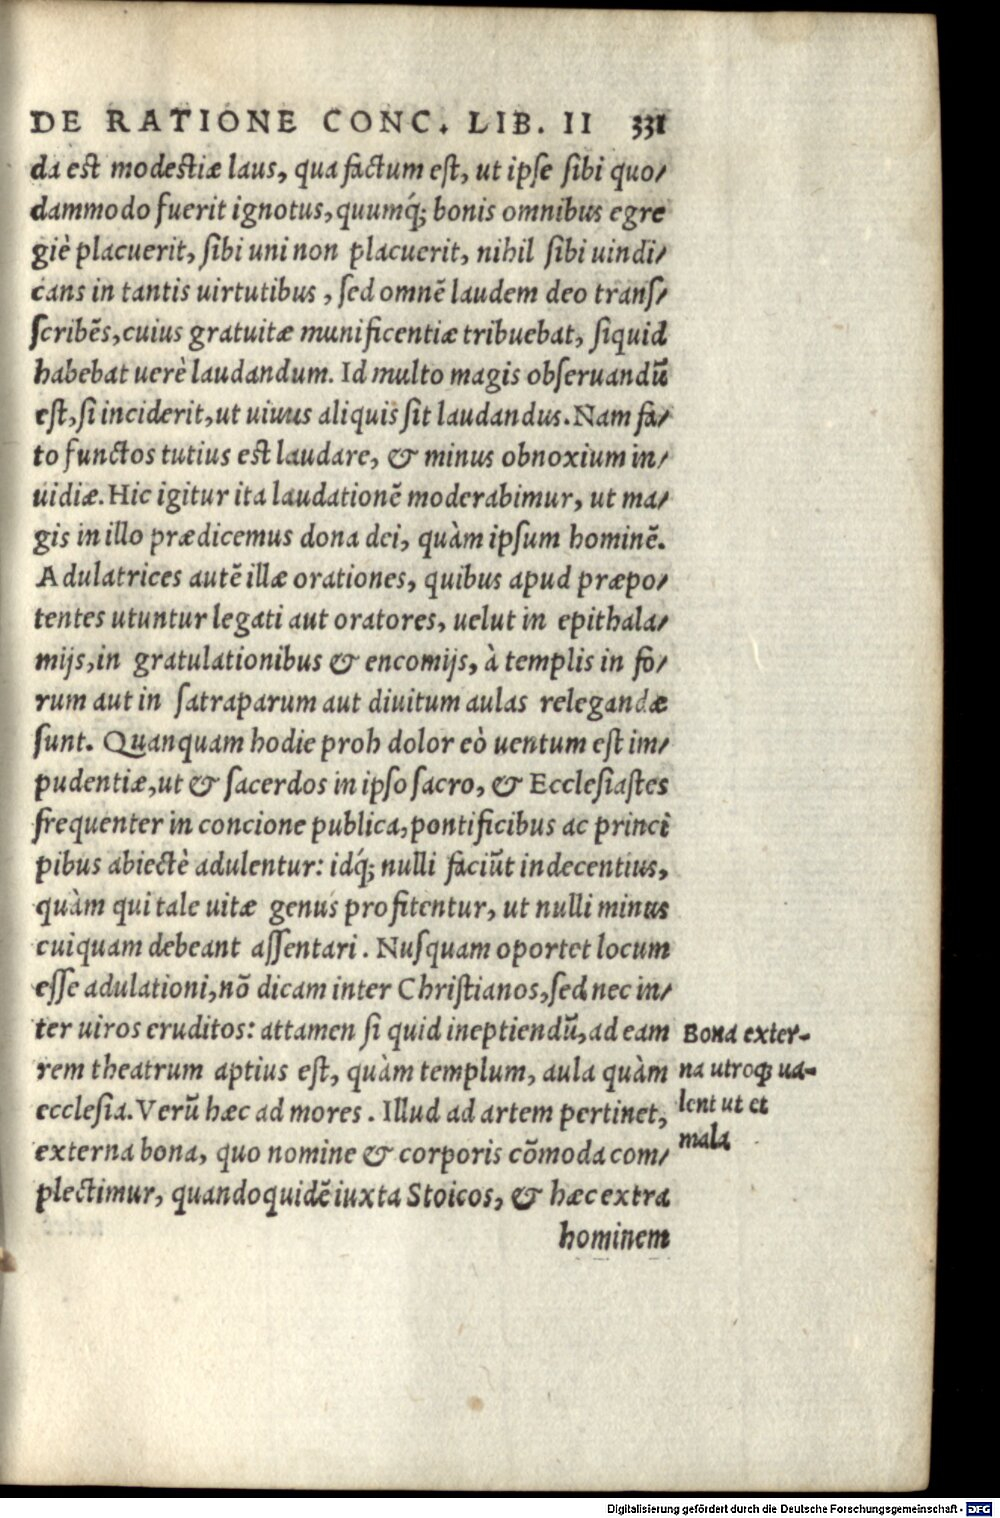 DE RATIONE CONC. LIB. II 331
da est modestiæ laus, qua factum est, ut ipse sibi quo/
dammodo fuerit ignotus, quumq́; bonis omnibus egre
giè placuerit, sibi uni non placuerit, nihil sibi uindi/
cans in tantis uirtutibus, sed omnē laudem deo trans/
scribēs, cuius gratuitæ munificentiæ tribuebat, siquid
habebat uerè laudandum. Id multo magis obseruandū
est, si inciderit, ut uiuus aliquis sit laudandus. Nam fa/
to functos tutius est laudare, & minus obnoxium in/
uidiæ. Hic igitur ita laudationē moderabimur, ut ma/
gis in illo prædicemus dona dei, quàm ipsum hominē.
Adulatrices autē illæ orationes, quibus apud præpo/
tentes utuntur legati aut oratores, uelut in epithala/
mijs, in gratulationibus & encomijs, à templis in fo/
rum aut in satraparum aut diuitum aulas relegandæ
sunt. Quanquam hodie proh dolor eò uentum est im/
pudentiæ, ut & sacerdos in ipso sacro, & Ecclesiastes
frequenter in concione publica, pontificibus ac princi
pibus abiectè adulentur: idq́; nulli faciūt indecentius,
quàm qui tale uitæ genus profitentur, ut nulli minus
cuiquam debeant assentari. Nusquam oportet locum
esse adulationi, nō dicam inter Christianos, sed nec in/
ter uiros eruditos: attamen si quid ineptiendū, ad eam
rem theatrum aptius est, quàm templum, aula quàm
ecclesia. Verū hæc ad mores. Illud ad artem pertinet,
externa bona, quo nomine & corporis cōmoda com/
plectimur, quandoquidē iuxta Stoicos, & hæc extra
hominem
Bona exter-
na utroq; ua-
lent ut et
mala
Digitalisierung gefördert durch die Deutsche Forschungsgemeinschaft - DFG